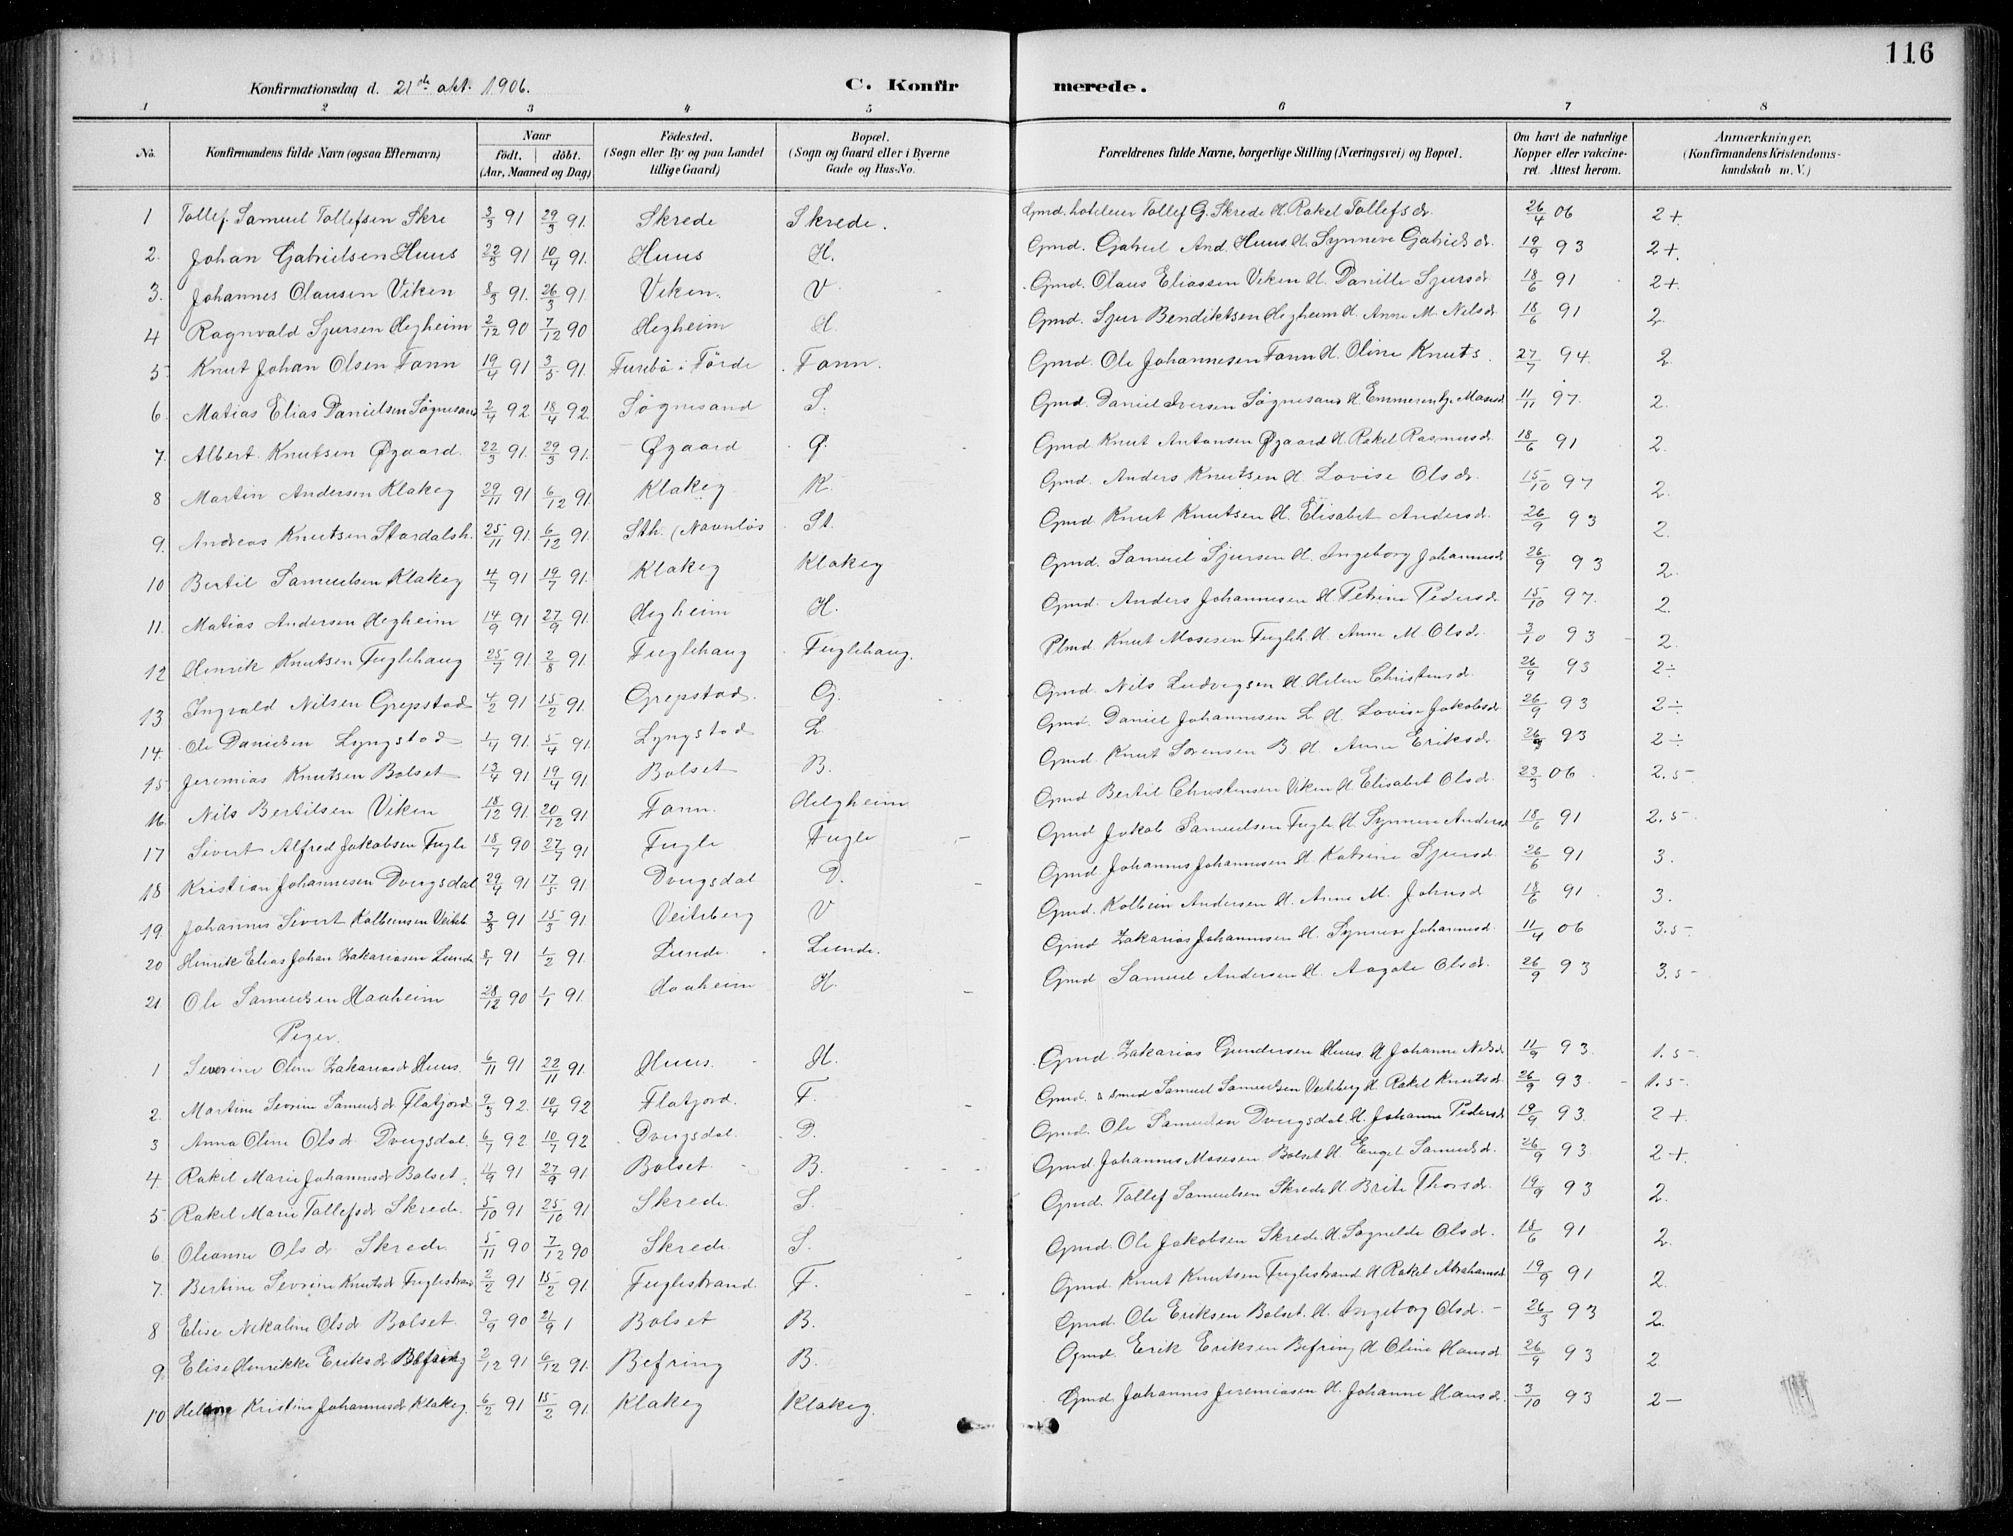 116
Konfirmationsdag d. 21de okt. 1906. C. Konfirmerede.
1 2 3 4 5 6 7 8
No. Konfirmandens fulde Navn (ogsaa Efternavn) Naar født, døbt. (Aar, Maaned og Dag) Fødested. (Sogn eller By og paa Landet tillige Gaard) Bopæl. (Sogn og Gaard eller i Byerne Gade og Hus-No. Forældrenes fulde Navne, borgerlige Stilling (Næringsvei) og Bopæl. Om havt de naturlige Kopper eller vakcineret. Attest herom. Anmærkninger. (Konfirmandens Kristendomskundskab m. V.)
1 Tollef Samuel Tollefsen Skre 3/3 91 29/3 91. Skrede Skrede. Gmd. hoteleier Tollef G. Skrede H. Rakel Tollefsdr. 26/4 06 2+
2. Johan Gabrielsen Huus 22/3 91 10/4 91. Huus H. Gmd. Gabriel And. Huus H. Synneve Gabrielsdr. 19/9 93 2+.
3. Johannes Olausen Viken 8/3 91. 26/3 91. Viken. V. Gmd. Olaus Eliassen Viken H. Danille Sjursdr. 18/6 91 2+.
4 Ragnvald Sjursen Hegheim 2/12 90 7/12 90 Hegheim H. Gmd. Sjur Bendiktsen Hegheim H. Anne M. Nilsdr. 18/6 91 2.
5 Knut Johan Olsen Fonn 19/4 91 3/5 91. Furebø i Førde Fonn. Gmd. Ole Johannesen Fonn H. Oline Knuts. 27/7 94. 2.
6. Matias Elias Danielsen Søgnesand 2/4 92. 18/4 92. Søgnesand S. Gmd. Daniel Iversen Søgnesand H. Emmerentze Mosesd. 11/11 97. 2.
7. Albert Knutsen Øgaard 22/3 91. 29/3 91. Øgaard Ø. Gmd Knut Antonsen Øgaard H. Rakel Rasmusdr. 18/6 91 2.
8 Martin Andersen Klakeg 29/11 91 6/12 91. Klakeg K. Gmd. Anders Knutsen H. Lovise Olsdr. 15/10 97 2.
9. Andreas Knutsen Stardalsh. 25/11 91. 6/12 91. Sth. (Navnløs St. Gmd. Knut Knutsen H. Elisabet Andersdr. 26/9 93 2.
10 Bertil Samuelsen Klakeg 4/7 91 19/7 91. Klakeg Klakeg Gmd. Samuel Sjursen H. Ingeborg Johannesdr 26/9 93 2.
11. Matias Andersen Hegheim 14/9 91 27/9 91. Hegheim H. Gmd. Anders Johannesen H. Petrine Pedersdr. 15/10 97. 2.
12 Henrik Knutsen Fuglehaug 25/7 91. 2/8 91. Fuglehaug Fuglehaug. Plmd. Knut Mosesen Fugleh. H. Anne M. Olsdr. 3/10 93 2.
13 Ingvald Nilsen Grepstad 4/2 91 15/2 91. Grepstad. G. Gmd. Nils Ludvigsen H. Helene Christensd. 26/9 93 2÷
14. Ole Danielsen Lyngstad 1/4 91. 5/4 91. Lyngstad L Gmd. Daniel Johannesen L. H. Lovise Jakobsdr 26/9 93 2÷
15 Jeremias Knutsen Bolset 13/4 91 19/4 91 Bolset B. Gmd. Knut Sørensen B. H. Anne Eriksdr 26/9 93 2÷
16. Nils Bertilsen Viken 18/12 91. 20/12 91 Fonn. Helgheim Gmd Bertil Christensen Viken H Elisabet Olsdr. 23/3 06 2.5
17 Sivert Alfred Jakobsen Fugle 18/7 90 27/7 91 Fugle Fugle Gmd Jakob Samuelsen Fugle H. Synneve Andersd 18/6 91 2.5
18 Kristian Johannesen Dvergsdal 29/4 91 17/5 91 Dvergsdal D. Gmd Johannes Johannesen H Katrine Sjursdr. 26/6 91 3.
19. Johannes Sivert Kolbeinsen Veiteb. 3/3 91 15/3 91. Veiteberg V Gmd. Kolbein Andersen H. Anne M. Johnsdr. 18/6 91 3.
20 Henrik Elias Johan Zakariasen Lunde 8/1 91 1/2 91. Lunde. Lunde. Gmd Zakarias Johannesen H. Synneve Johannesd. 11/4 06 3.5
21 Ole Samuelsen Haaheim 28/12 90 1/1 91. Haaheim H. Gmd Samuel Andersen H. Aagate Olsdr. 26/9 93 3.5
Piger.
1 Severine Oline Zakariasdr Huus. 6/11 91 22/11 91. Huus. H. Gmd. Zakarias Gundersen Huus H Johanne Nilsdr 11/9 93. 1.5
2. Martine Sevrine Samuelsdr Flatjord 9/3 92. 10/4 92 Flatjord. F. Gmd. & smed Samuel Samuelsen Veiteberg H Rakel Knutsdr. 26/9 93. 1.5
3 Anna Oline Olsdr Dvergsdal. 6/7 92. 10/7 92 Dvergsdal. D. Gmd. Ole Samuelsen Dvergsdal. H. Johanne Pedersdr 19/9 93. 2+
4. Rakel Marie Johannesdr Bolset. 4/9 91 27/9 91 Bolset. B. Gmd. Johannes Mosesen Bolset H. Engel Samuelsdr. 26/9 93. 2+.
5 Rakel Marie Tollefsdr Skrede. 5/10 91 25/10 91 Skrede. S. Gmd. Tollef Samuelsen Skrede H Brite Thorsdr. 19/9 93 2.
6 Oleanne Olsdr Skrede. 5/11 90 7/12 90 Skrede. S. Gmd. Ole Jakobsen Skrede H Sognelde Olsdr. 18/6 91 2.
7. Bertine Sevrine Knutsdr Fuglestrand 2/2 91 15/2 91. Fuglestrand. F. Gmd. Knut Knutsen Fuglestrand H Rakel Abrahamsdr 19/9 91 2.
8 Elise Nekoline Olsdr Bolset. 9/9 90 21/9 1 Bolset B. Gmd. Ole Eriksen Bolset. H. Ingeborg Olsdr. 26/3 93 2.
9. Elise Henrikke Eriksdr Befring 2/12 91 6/12 91. Befring B. Gmd. Erik Eriksen Befring H Oline Hansdr 26/9 93 2
10 Helene Kristine Johannesdr Klakeg. 6/2 91 15/2 91. Klakeg Klakeg. Gmd. Johannes Jeremiasen H. Johanne Hansdr. 3/10 93 2-